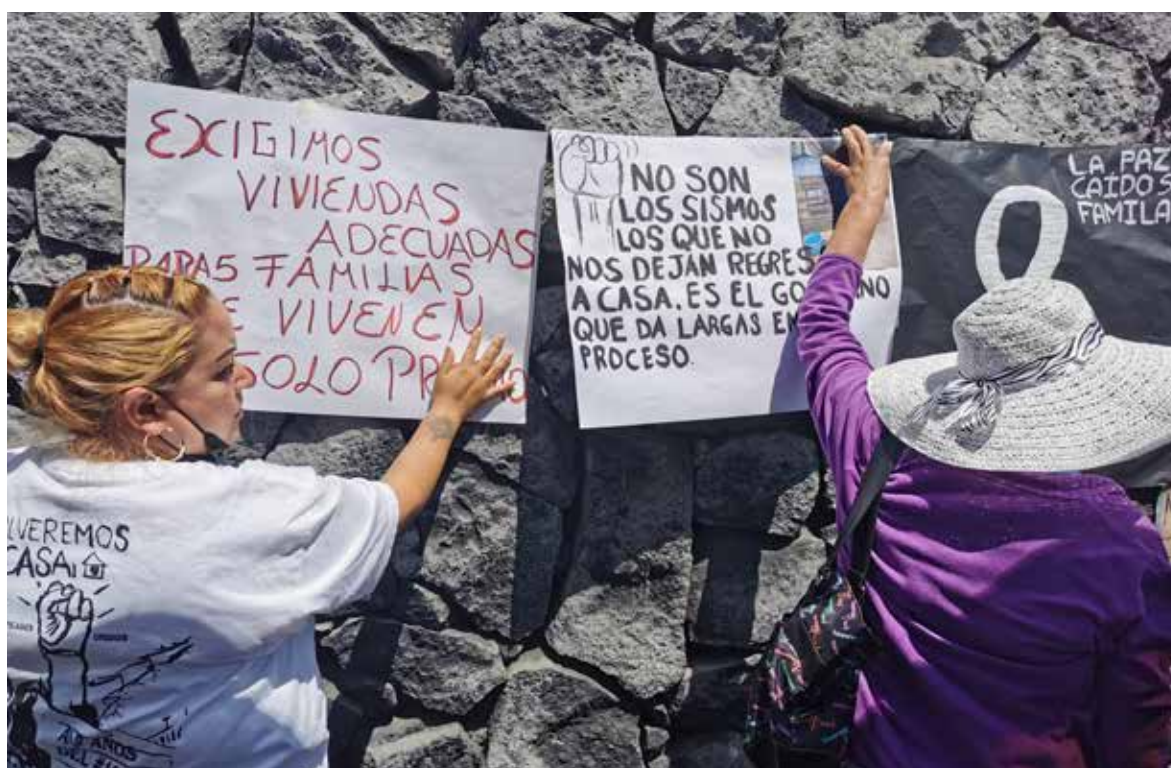 EXIGIMOS
VIVIENDAS
ADECUADAS
FAMILIAS
VIVEN EN
SOLO
NO SON
LOS SISMOS
LOS QUE NO
NOS DEJAN
A CASA. ES EL
QUE DA LARGAS
PROCESO.
LA PAZ
CAÍDOS
FAMILA
LVEREMOS
CASA
AÑOS
DEL